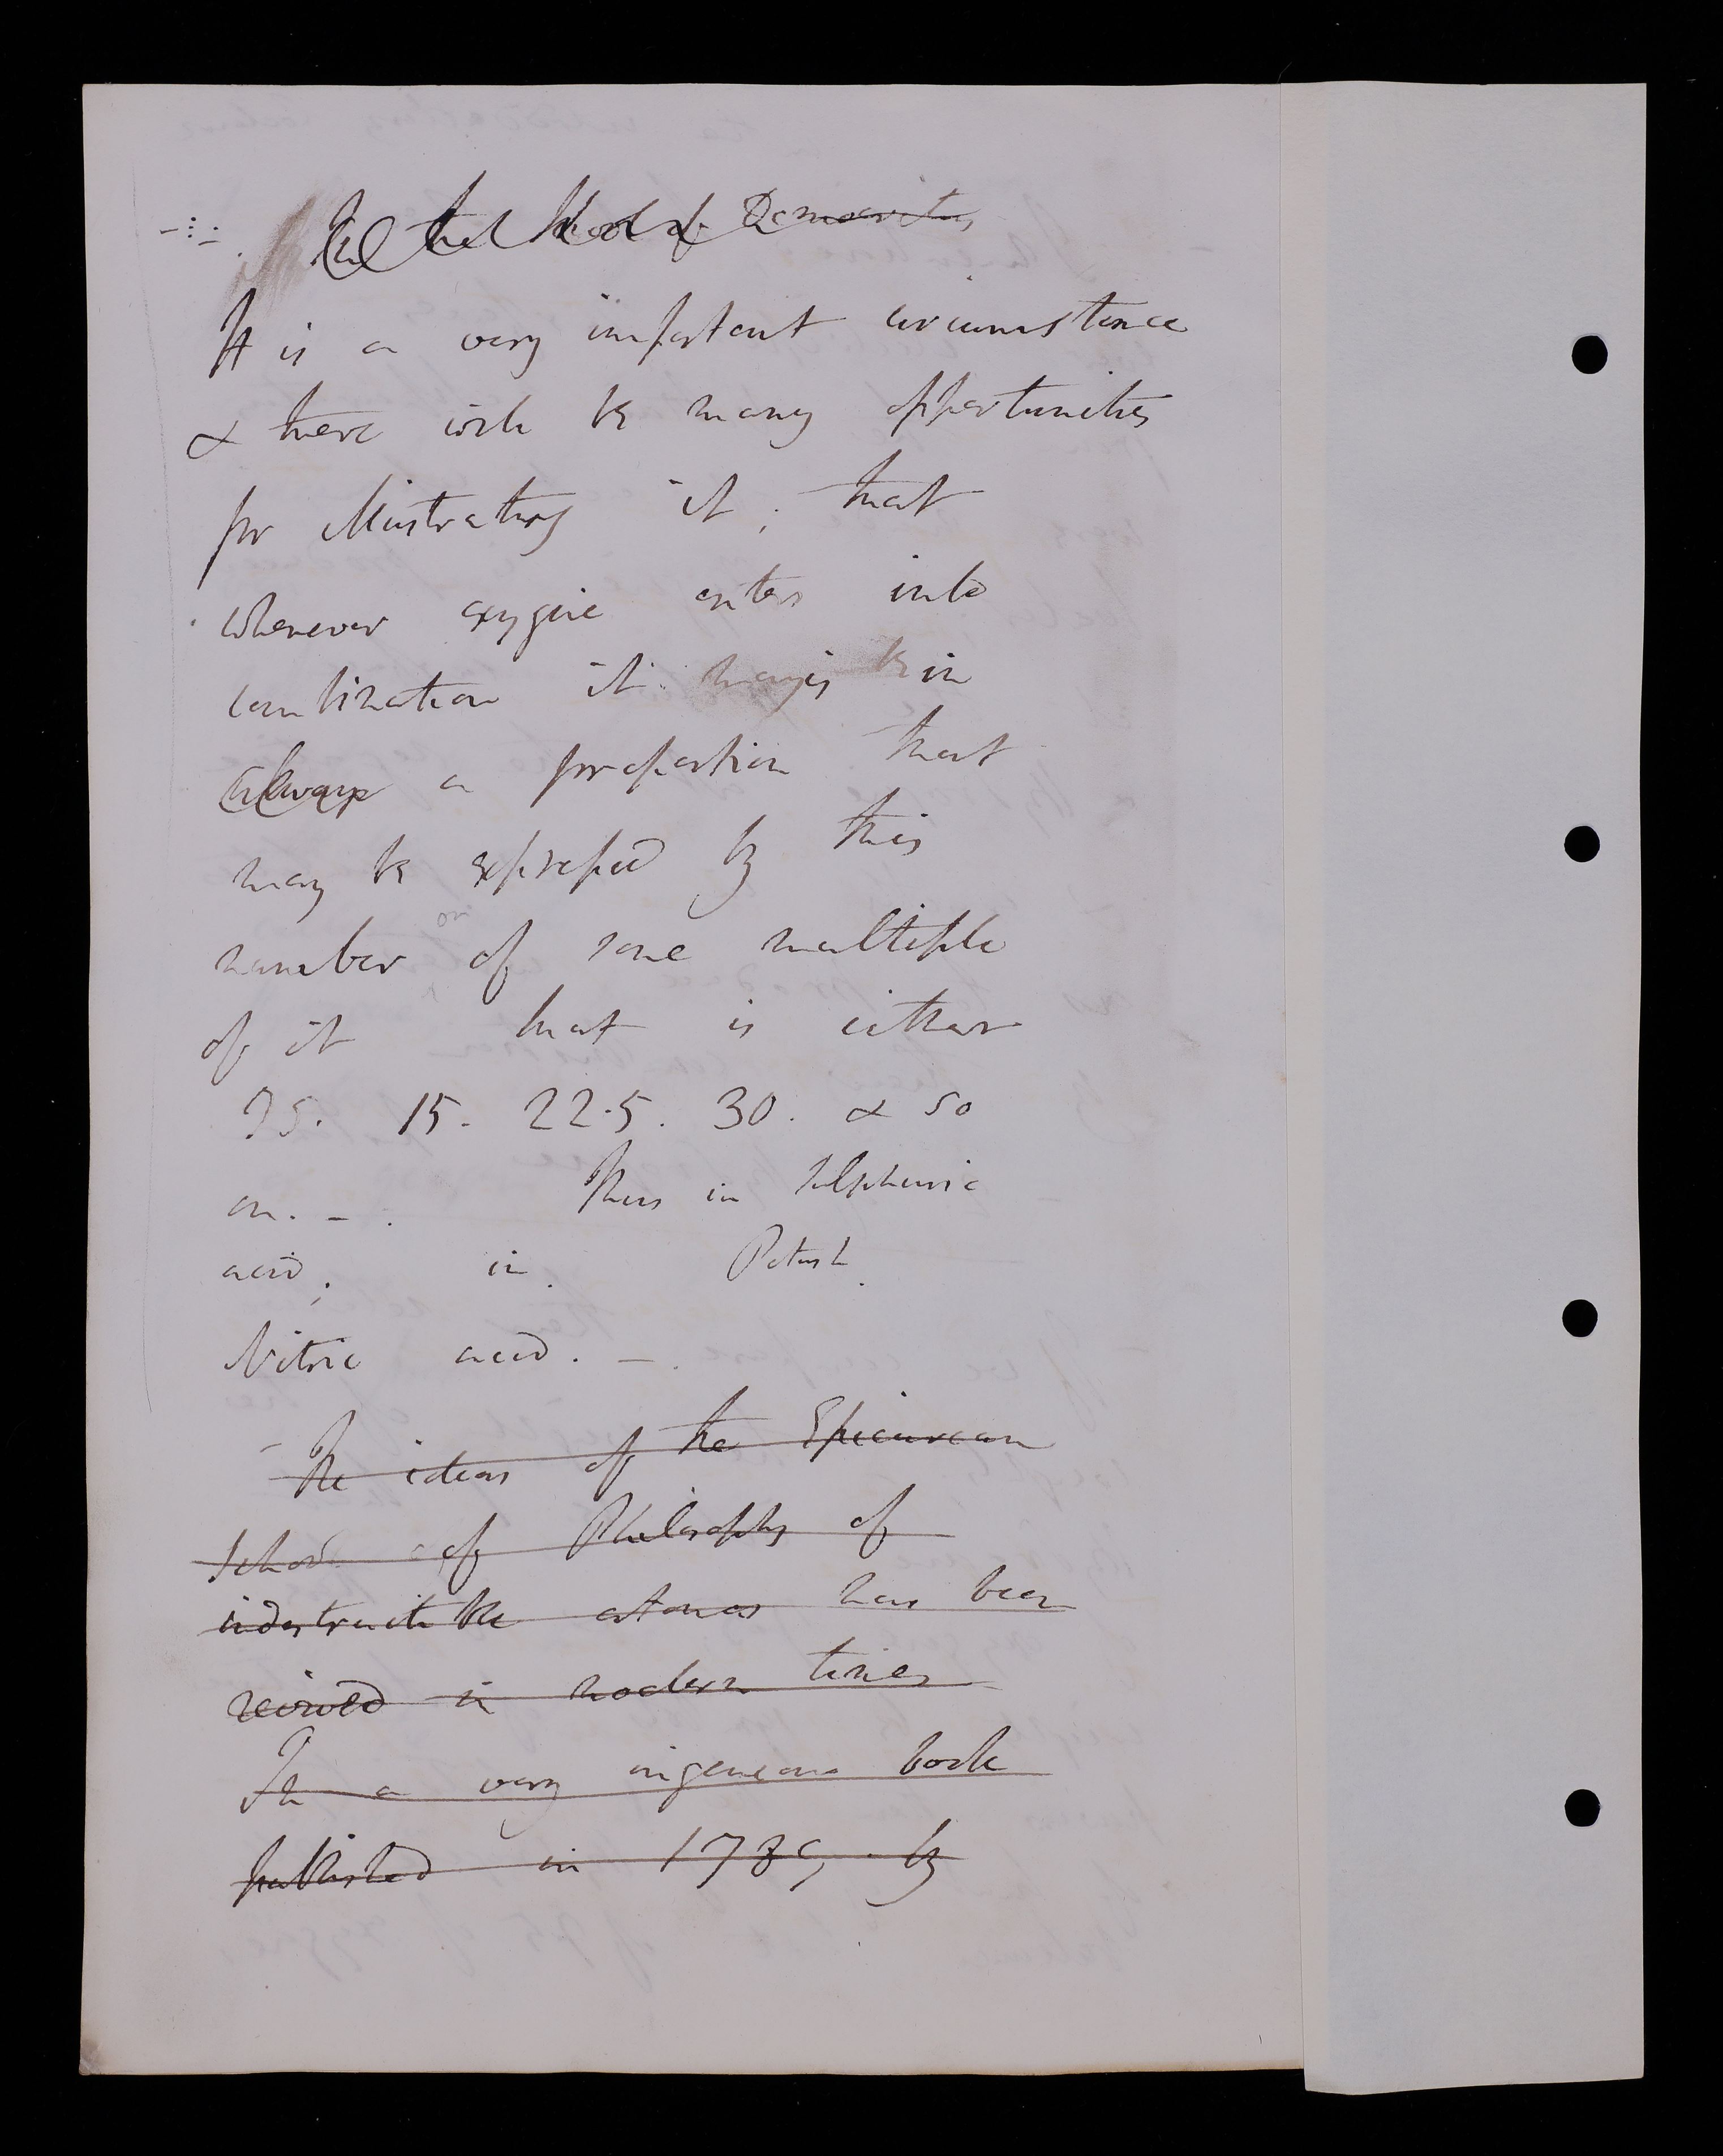 of Democritus
It is a very important circumstance
& there will be many opportunities
for illustrating it; that
whenever oxygene enters into
combination it is in
always a proportion that
may be expressed by this
or
number of some multiple
of it that is either
75. 15. 22.5. 30. & so
on. - . Thus in Sulphuric
acid; in. Potash.
Nitric acid. - .
- The ideas of the Epicurean
School of Philosophy of
indestructible atoms has been
revived in modern times
In a very ingenious book
published in 1789, by